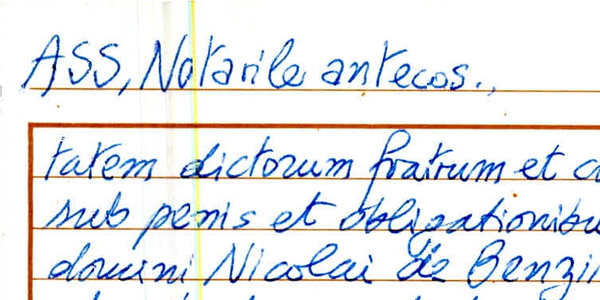 ASS, Notarile antecos.,
tatem dictorum fratrum et
sub penis et obligationibu
domini Nicolai de Benzi